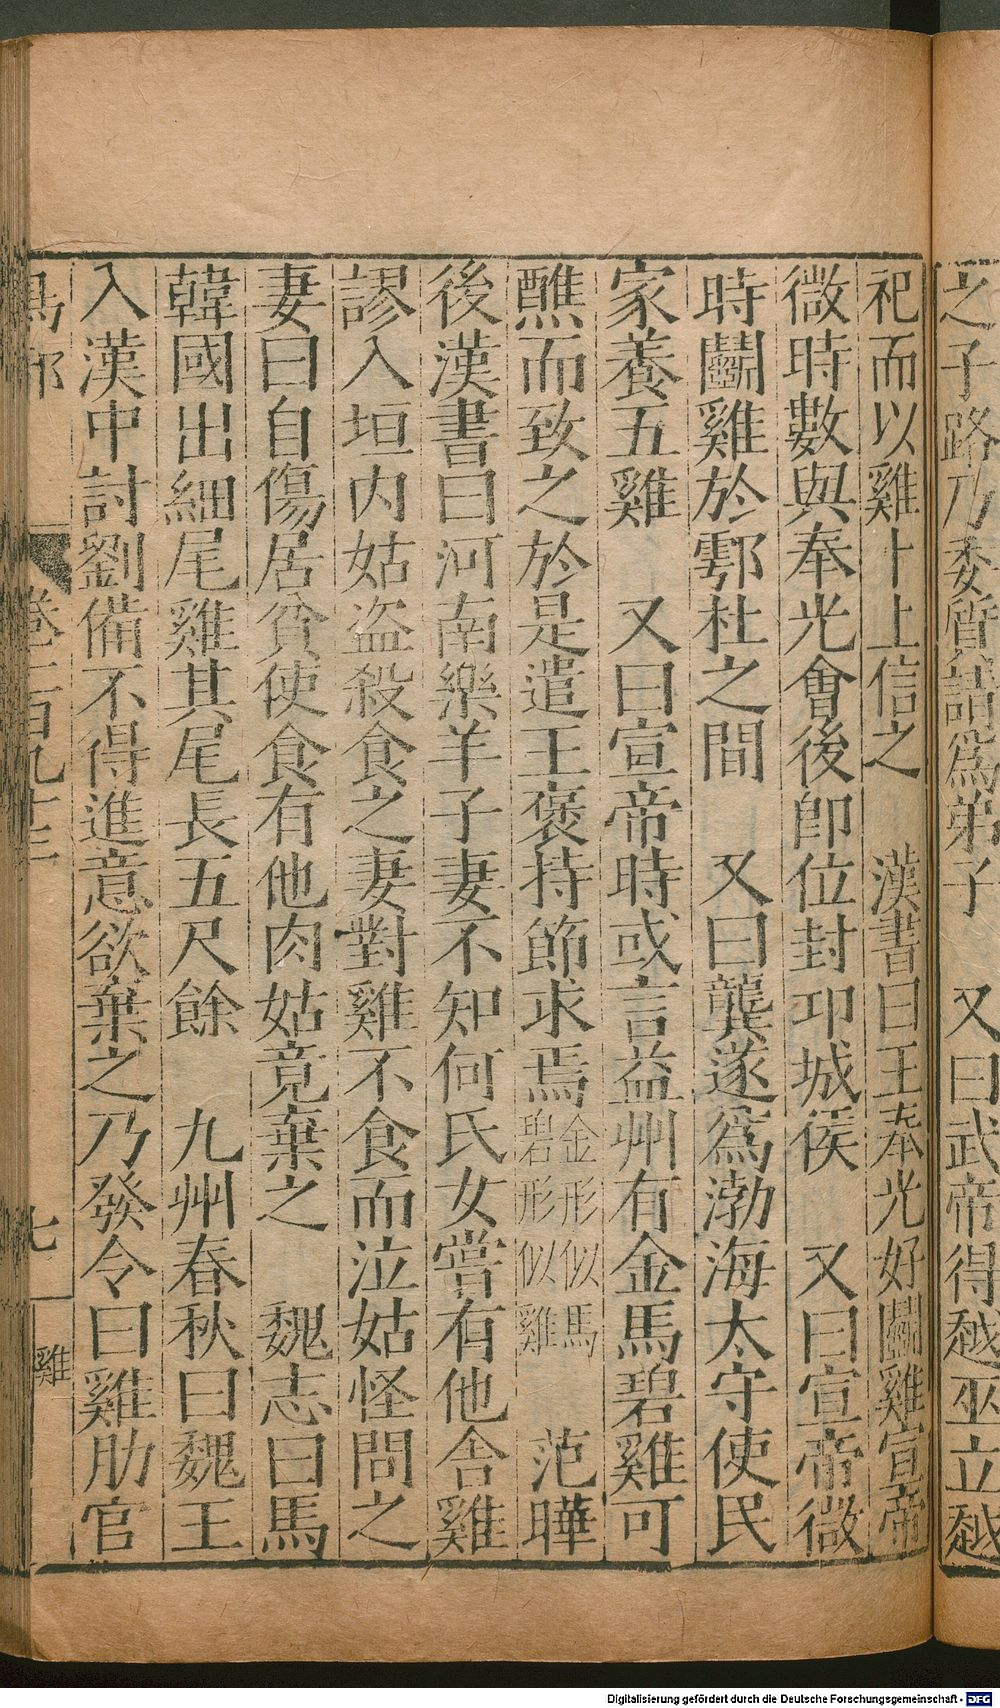 之子路乃委質請爲弟子　又曰武帝得越巫立越
祀而以雞卜上信之　漢書曰王奉光好鬭雞宣帝
微時數與奉光會後卽位封邛城侯　又曰宣帝微
時鬭雞於鄠杜之間　又曰龔遂爲渤海太守使民
家養五雞　又曰宣帝時或言益州有金馬碧雞可
醮而致之於是遣王褒持節求焉金形似馬碧形似雞　范曄
後漢書曰河南樂羊子妻不知何氏女嘗有他舍雞
謬入垣内姑盜殺食之妻對雞不食而泣姑怪問之
妻曰自傷居貧使食有他肉姑竟棄之　魏志曰馬
韓國出細尾雞其尾長五尺餘　九州春秋曰魏王
入漢中討劉備不得進意欲棄之乃發令曰雞肋官
鳥部　卷一百九十三　七　雞
Digitalisierung gefördert durch die Deutsche Forschungsgemeinschaft - DFG